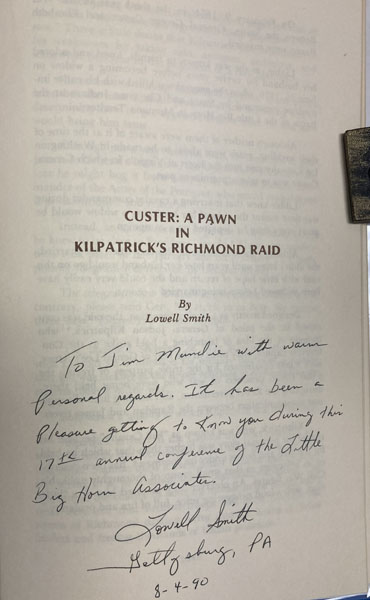 CUSTER: A PAWN
IN
KILPATRICK'S RICHMOND RAID
By
Lowell Smith
To Jim Mundie with warm
personal regards. It has been a
pleasure getting to know you during this
17th annual conference of the Little
Big Horn Associates.
Lowell Smith
Gettysburg, PA
8-4-90